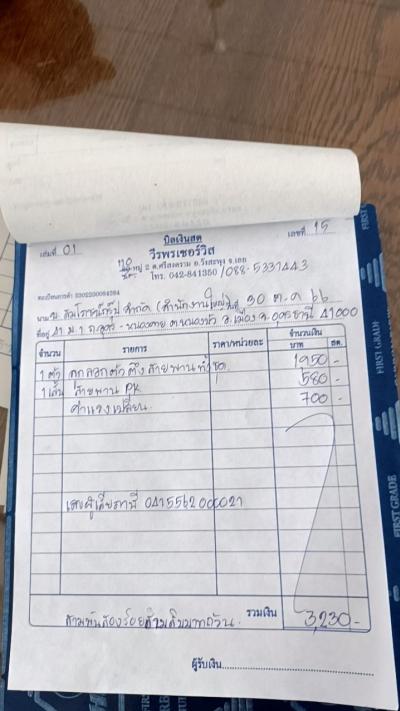 บิลเงินสด
เล่มที่ 01
เลขที่ 15
วีรพรเซอร์วิส
หมู่ 2 ต.ศรีสงคราม อ.วังสะพุง จ.เลย
โทร. 042-841350 /088-5331443
ทะเบียนการค้า
นาม สำนักงานใหญ่ วันที่ 30 ต.ค 66
ที่อยู่ 41 ม 1 อ.เมือง จ.อุดรธานี 41000
จำนวน รายการ ราคา/หน่วยละ จำนวนเงิน
บาท สต.
1 ตัว ลูกลอกตัวตั้งสายพานทั้งชุด 1950 -
1 เส้น สายพาน PK 580 -
ค่าแรงเปลี่ยน 700 -
เลขผู้เสียภาษี 0415562000021
สามพันสองร้อยสามสิบบาทถ้วน รวมเงิน 3,230 -
ผู้รับเงิน
FIRST GRADE
FIRST GRADE